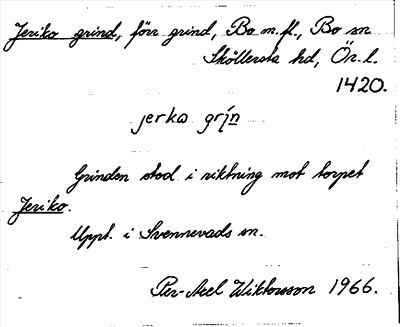 Jeriko grind, förr grind, Bo m.fl., Bo sn
Sköllersta hd, Ör. l.
1420.
jerka grín
Grinden stod i riktning mot torpet
Jeriko.
Uppt. i Svennevads sn.
Per-Axel Wiktorsson 1966.